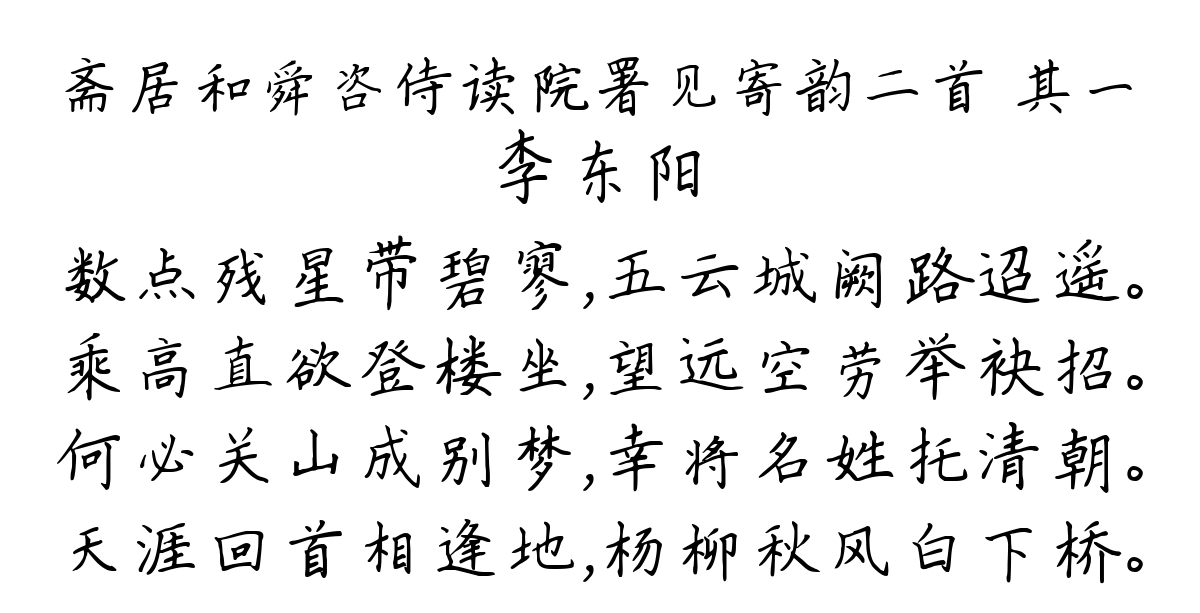 斋居和舜咨侍读院署见寄韵二首 其一
李东阳
数点残星带碧寥,五云城阙路迢遥。
乘高直欲登楼坐,望远空劳举袂招。
何必关山成别梦,幸将名姓托清朝。
天涯回首相逢地,杨柳秋风白下桥。